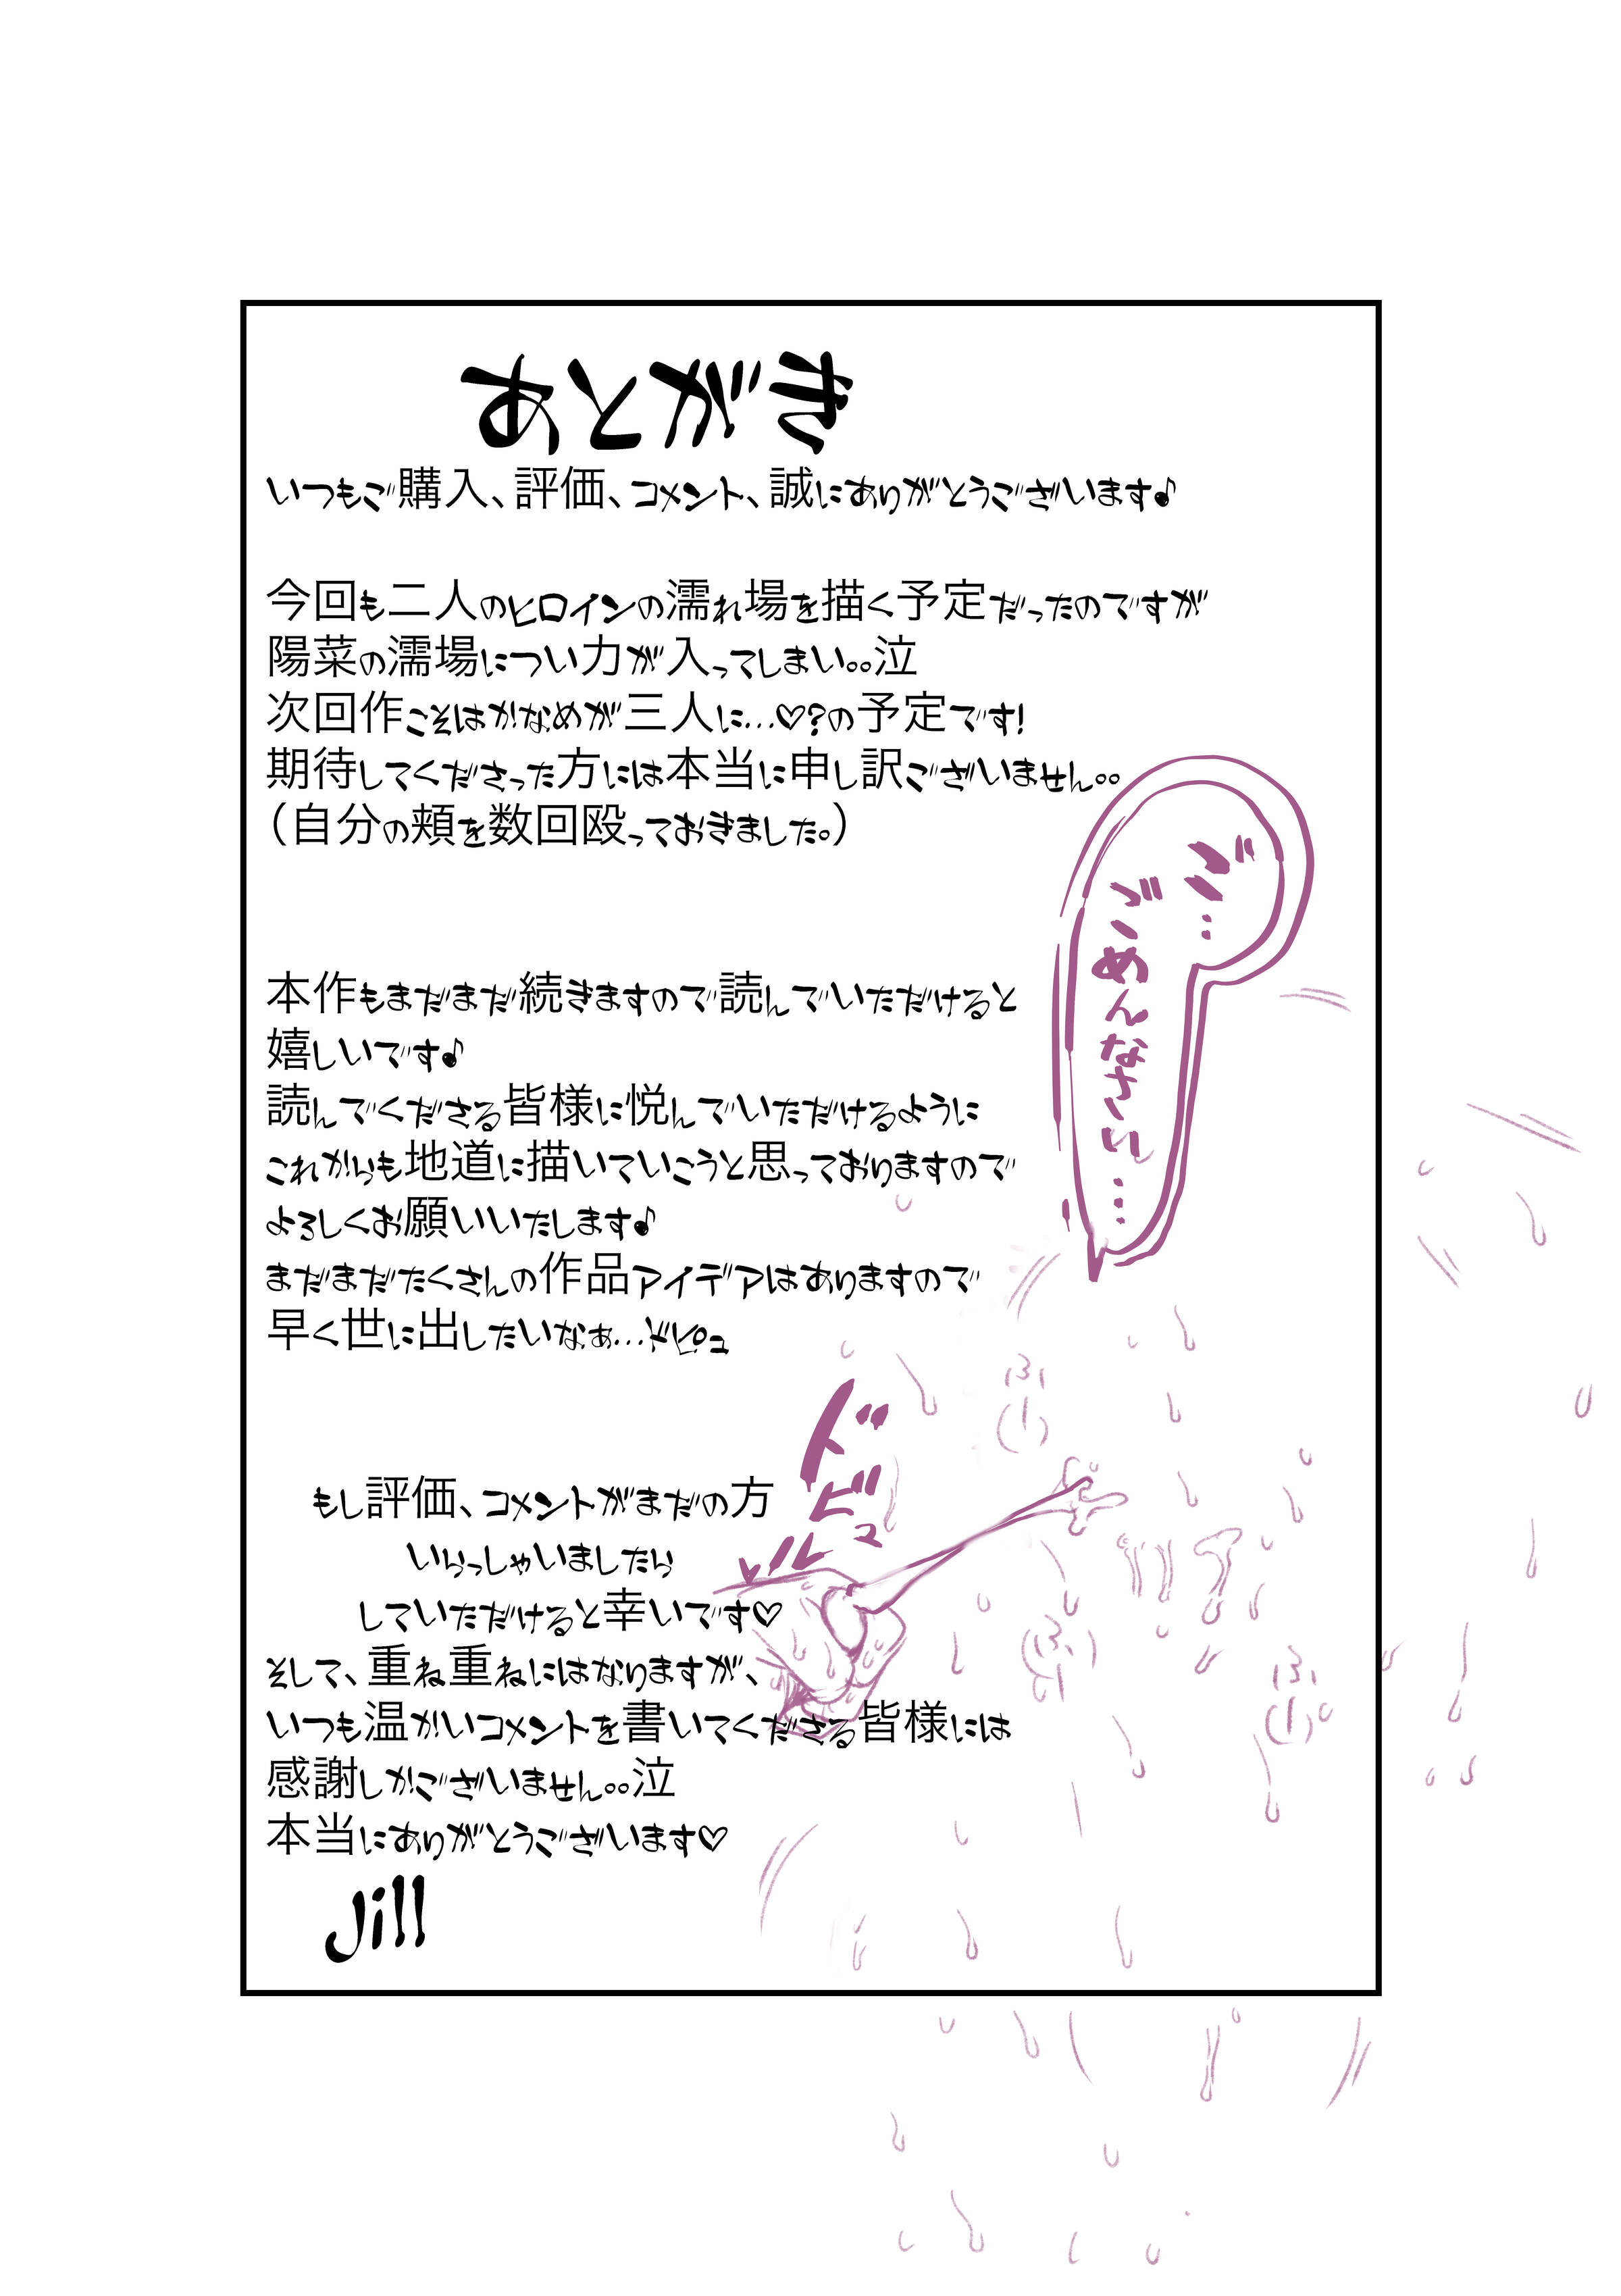 あとがき
いつもご購入、評価、コメント、誠にありがとうございます♪
今回も二人のヒロインの濡れ場を描く予定だったのですが
陽菜の濡場につい力が入ってしまい。。泣
次回作こそはかなめが三人に…♡?の予定です!
期待してくださった方には本当に申し訳ございません。。
(自分の頬を数回殴っておきました。)
ご…
ごめんなさい…
本作もまだまだ続きますので読んでいただけると
嬉しいです♪
読んでくださる皆様に悦んでいただけるように
これからも地道に描いていこうと思っておりますので
よろしくお願いいたします♪
まだまだたくさんの作品アイデアはありますので
早く世に出したいなぁ…ドピュ
ふぅ
(ー)
ドビュルル
もし評価、コメントがまだの方
いらっしゃいましたら
していただけると幸いです♡
そして、重ね重ねにはなりますが、
いつも温かいコメントを書いてくださる皆様には
感謝しかございません。。泣
本当にありがとうございます♡
Jill